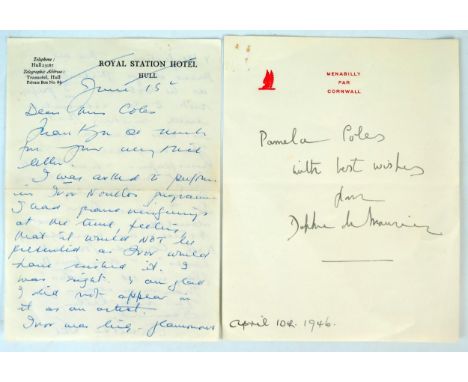 Telephone:
Hull 25087
Telegraphic Address:
Transotel, Hull
Private Box No. 84
ROYAL STATION HOTEL
HULL
June 15
Dear Miss Coles
Thank you so much
for your very kind
letter.
I was asked to perform
in Ivor Novello's programme
I had grave misgivings
at the time feeling
that it would NOT be
presented as Ivor would
have wished it. I
was right & am glad
I did not appear in
it as an artist
Ivor was big, glamorous
MENABILLY
PAR
CORNWALL
Pamela Coles
with best wishes
from
Daphne du Maurier
April 10th. 1946.